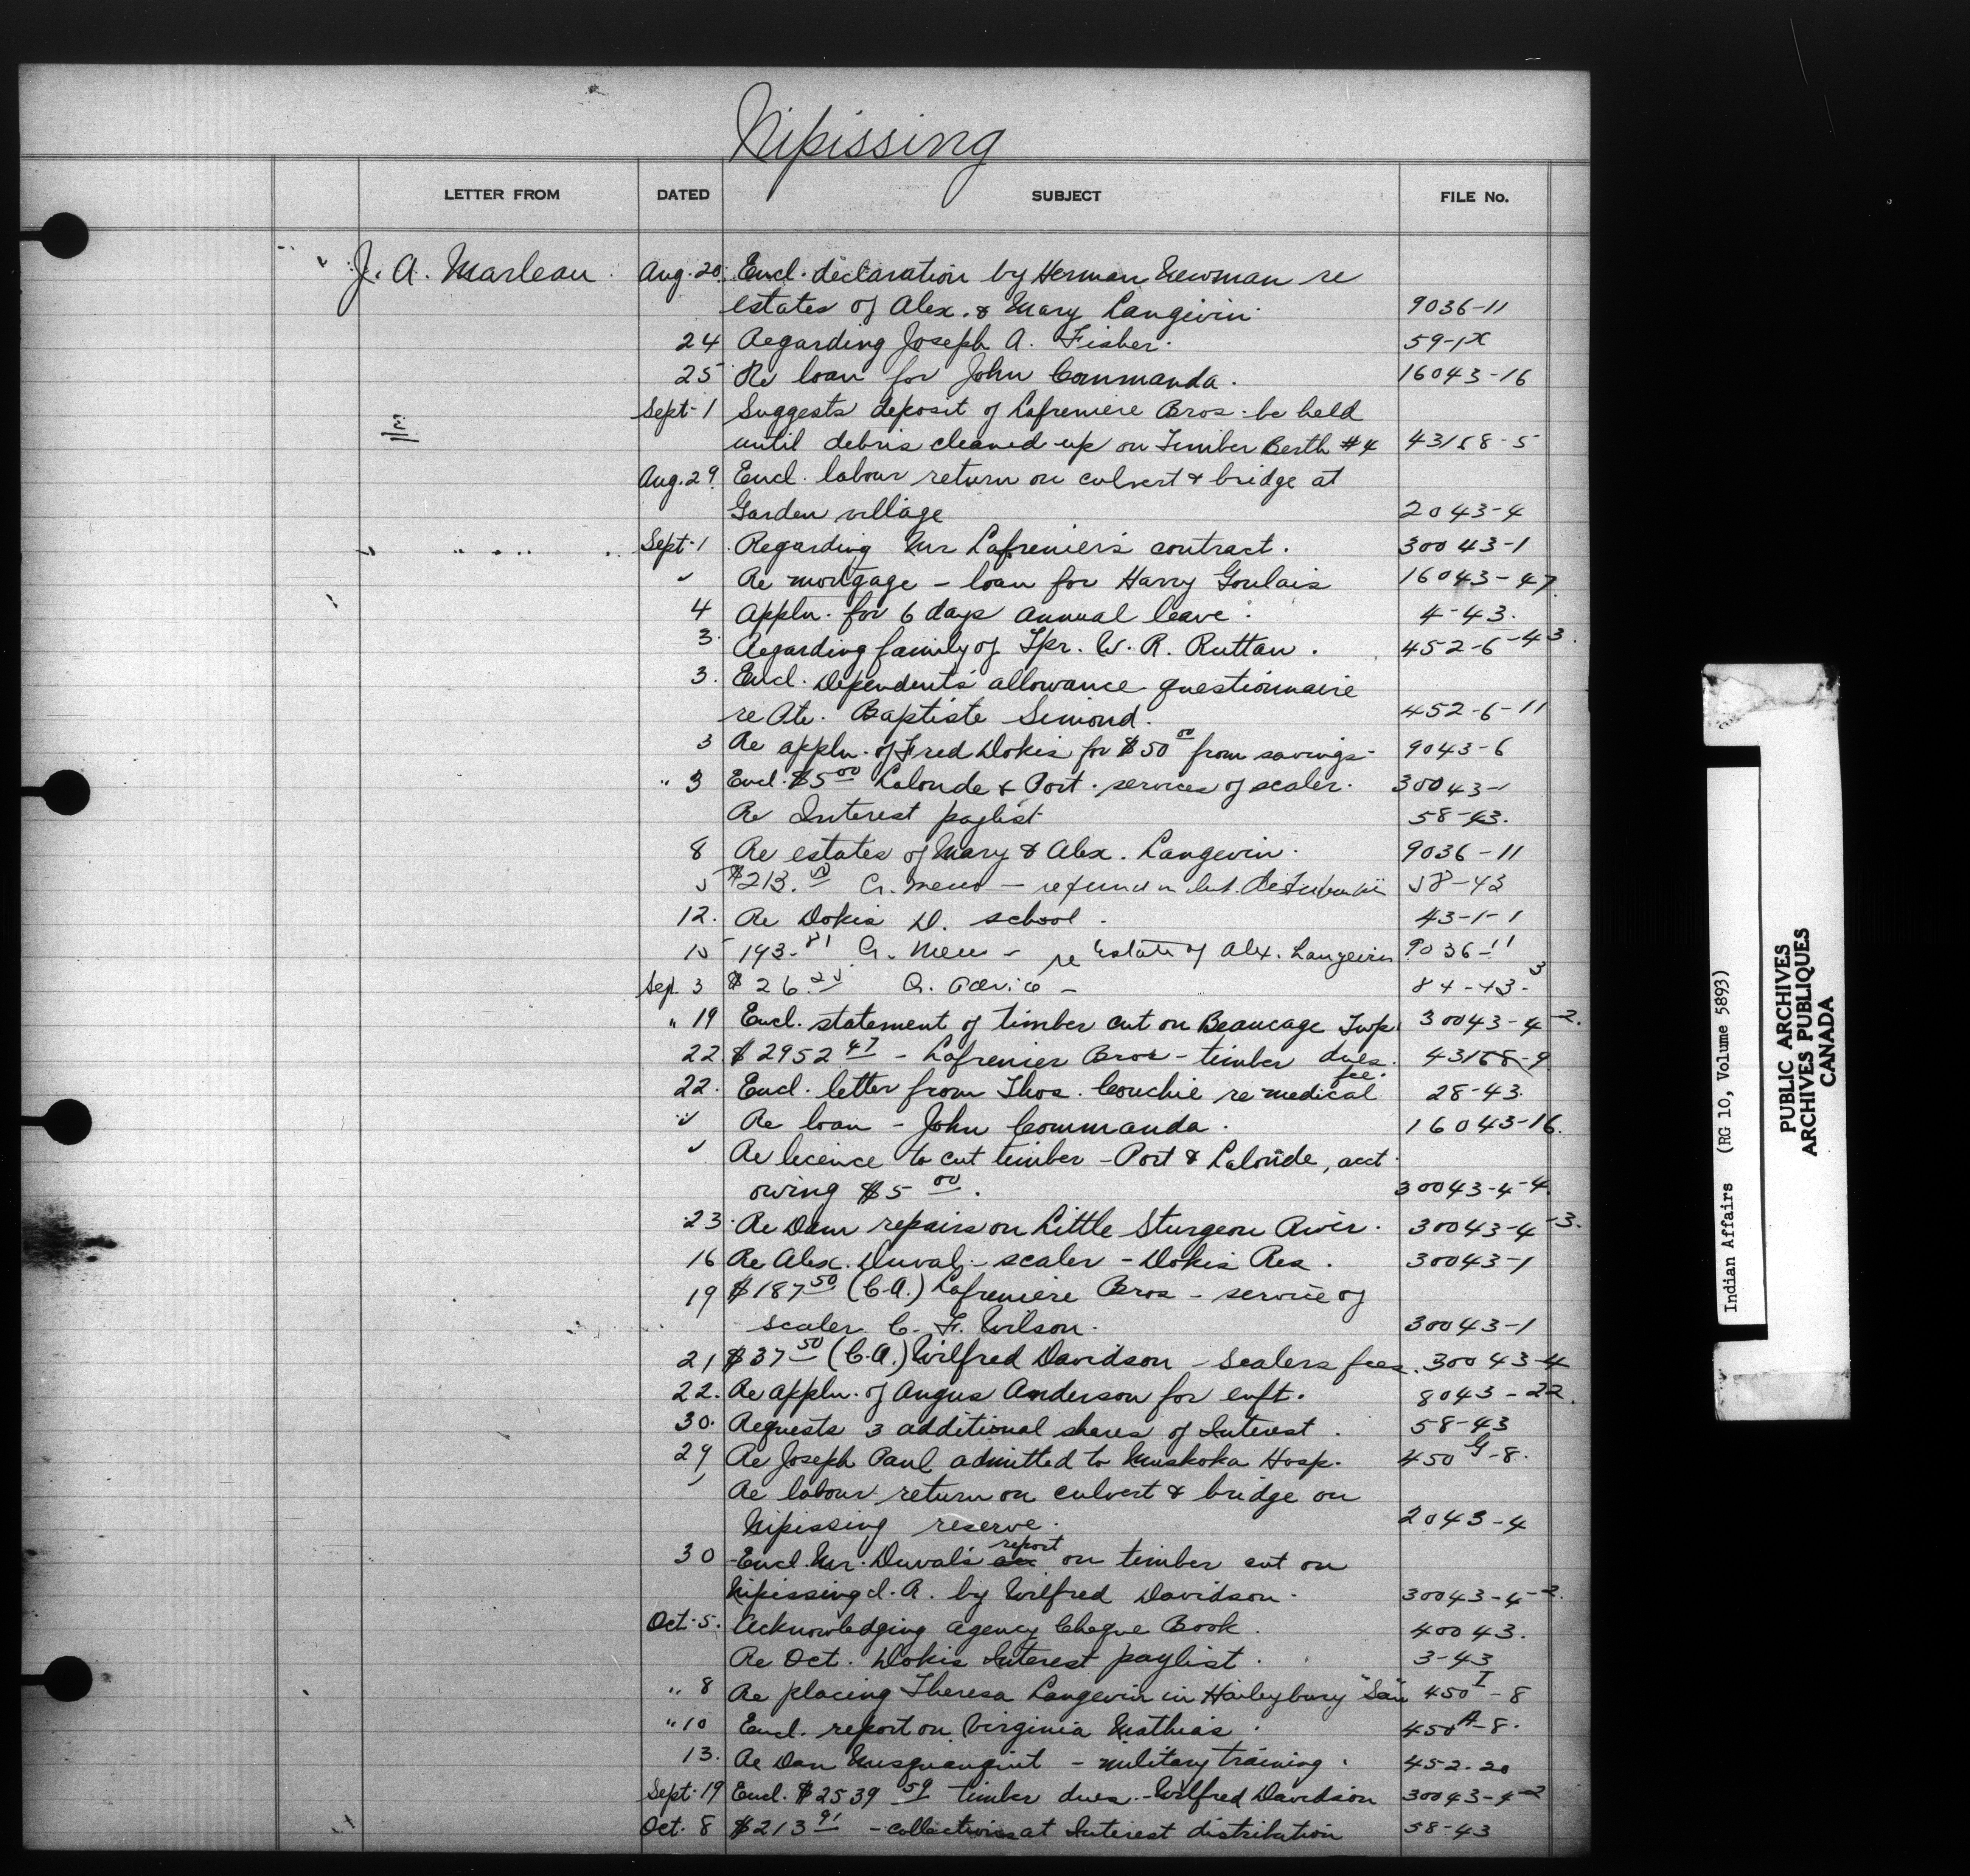 Nipissing
LETTER FROM DATED SUBJECT FILE No.
J. A. Marleau Aug. 20 Encl. declaration by Herman Newman re
estates of Alex. & Mary Langevin. 9036-11
24 Regarding Joseph A. Fisher. 59-1x
25 Re loan for John Commanda. 16043-16
Sept. 1 Suggests deposit of Lafreniere Bros. be held
until debris cleaned up on Timber Berth #4 43158-5
Aug. 29 Encl. labour return on culvert & bridge at
Garden village 2043-4
Sept. 1 Regarding Mr Lafrenier's contract. 30043-1
Re mortgage - loan for Harry Goulais 16043-47
4 Appln. for 6 days annual leave. 4-43.
3. Regarding family of Tpr. W. R. Ruttan. 452-6-43.
3. Encl. Dependents' allowance questionnaire
re Pte. Baptiste Simond. 452-6-11
3 Re appln. of Fred Dokis for $50 00 from savings. 9043-6
" 3 Encl. $5 00 Lalonde & Port. services of scaler. 30043-1
Re Interest paylist 58-43.
8 Re estates of Mary & Alex. Langevin. 9036-11
5 $213. Cr. memo - refund in Int. 58-43
12. Re Dokis D. school. 43-1-1
15 193.81 Cr. Memo - re Estate of Alex. Langevin 9036-11
Sep. 3 $26.25 Cr. Advice - 84-43-3
" 19 Encl. statement of timber cut on Beaucage Twp. 30043-4-2.
22 $2952 47 - Lafrenier Bros - timber dues. 43158-9
22. Encl. letter from Thos. Couchie re medical fee. 28-43.
Re loan - John Commanda. 16043-16.
Re licence to cut timber - Port & Lalonde, acct.
owing $5 00. 30043-4-4.
23. Re Dam repairs on Little Sturgeon River. 30043-4-3.
16 Re Alex. Duval - scaler - Dokis Res. 30043-1
19 $187 50 (C.A.) Lafreniere Bros - service of
scaler C. F. Wilson. 30043-1
21 $37 50 (C.A.) Wilfred Davidson - Scalers fees. 30043-4
22. Re appln. of Angus Anderson for enft. 8043-22.
30. Requests 3 additional shares of Interest. 58-43
29 Re Joseph Paul admitted to Muskoka Hosp. 450 G-8.
Re labour return on culvert & bridge on
Nipissing reserve. 2043-4
30 Encl. Mr. Duval's report on timber cut on
Nipissing I.R. by Wilfred Davidson. 30043-4-2.
Oct. 5. Acknowledging agency Cheque Book. 40043.
Re Oct. Dokis Interest paylist. 3-43
" 8 Re placing Theresa Langevin in Haileybury "San 450 I-8
" 10 Encl. report on Virginia Mathias. 450 A-8.
13. Re Dan - military training. 452-20
Sept. 19 Encl. $2539 59 timber dues - Wilfred Davidson 30043-4-2
Oct. 8 $213 91 - collections at Interest distribution 58-43
Indian Affairs (RG 10, Volume 5893)
PUBLIC ARCHIVES
ARCHIVES PUBLIQUES
CANADA